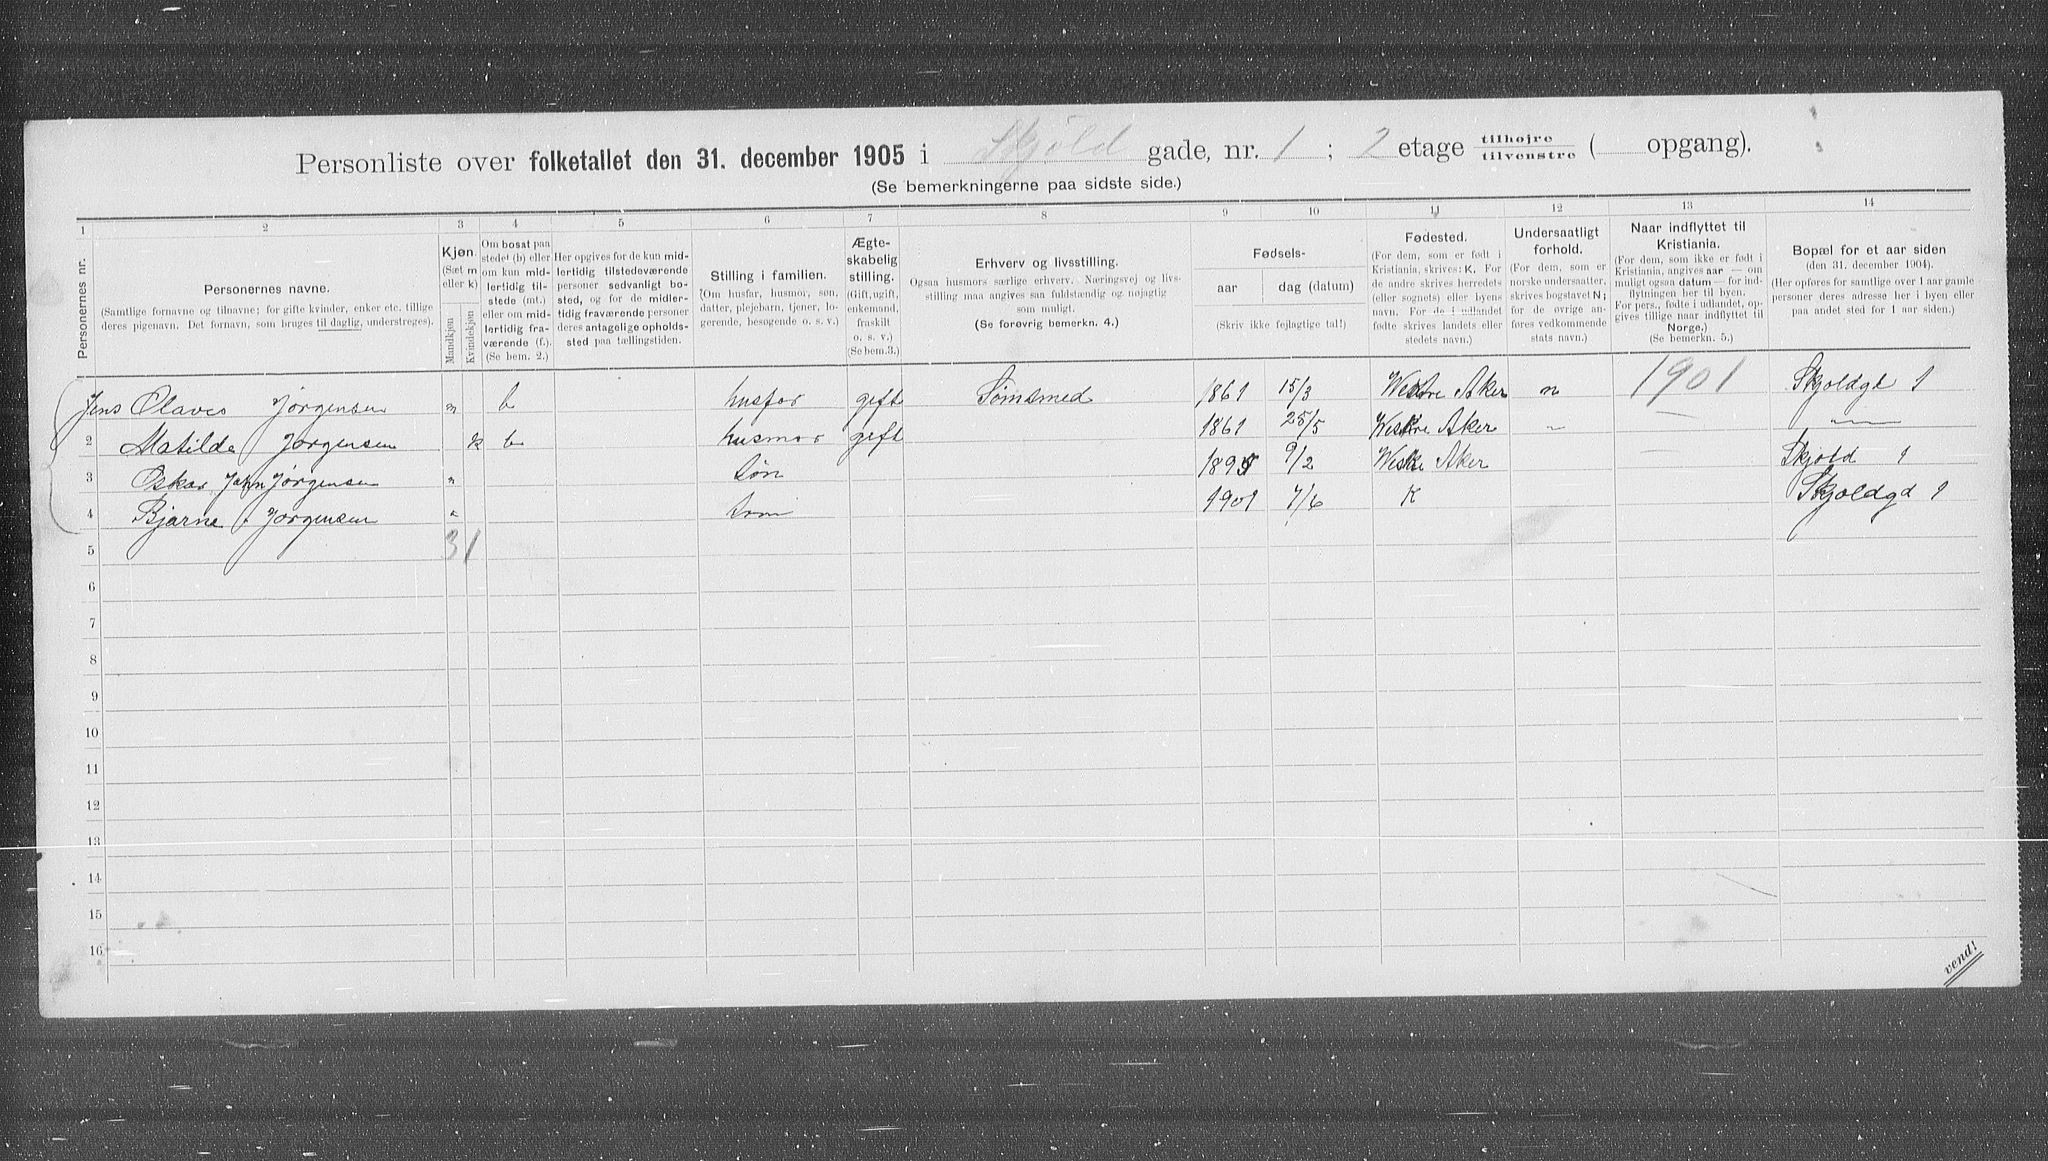 Personliste over folketallet den 31. december 1905 i Skjöld gade, nr. 1 ; 2 etage tilhøjre tilvenstre ( opgang).
(Se bemerkningerne paa sidste side.)
1 2 3 4 5 6 7 8 9 10 11 12 13 14
Personernes nr.
Personernes navne.
(Samtlige fornavne og tilnavne; for gifte kvinder, enker etc. tillige
deres pigenavn. Det fornavn, som bruges til daglig, understreges).
Kjøn.
(Sæt m
eller k)
Mandkjøn
Kvindekjøn
Om bosat paa
stedet (b) eller
om kun mid-
lertidig til-
stede (mt.)
eller om mid-
lertidig fra-
værende (f.).
(Se bem. 2.)
Her opgives for de kun mid-
lertidig tilstedeværende
personer sedvanligt bo-
sted, og for de midler-
tidig fraværende personer
deres antagelige opholds-
sted paa tællingstiden.
Stilling i familien.
(Om husfar, husmor, søn,
datter, plejebarn, tjener, lo-
gerende, besøgende o. s. v.)
Ægte-
skabelig
stilling.
(Gift, ugift,
enkemand,
fraskilt
o. s. v.)
(Se bem.3.)
Erhverv og livsstilling.
Ogsaa husmors særlige erhverv. Næringsvej og livs-
stilling maa angives saa fuldstændig og nøjagtig
som muligt.
(Se forøvrig bemerkn. 4.)
Fødsels-
aar dag (datum)
(Skriv ikke fejlagtige tal!)
Fødested.
(For dem, som er født i
Kristiania, skrives: K. For
de andre skrives herredets
(eller sognets) eller byens
navn. For de i udlandet
fødte skrives landets eller
stedets navn.)
Undersaatligt
forhold.
(For dem, som er
norske undersaatter,
skrives bogstavet N;
for de øvrige an-
føres vedkommende
stats navn.)
Naar indflyttet til
Kristiania.
(For dem, som ikke er født i
Kristiania, angives aar — om
muligt ogsaa datum — for ind-
flytningen her til byen.
For pers., fødte i udlandet, op-
gives tillige naar indflyttet til
Norge.)
(Se bemerkn. 5.)
Bopæl for et aar siden
(den 31. december 1904).
(Her opføres for samtlige over 1 aar gamle
personer deres adresse her i byen eller
paa andet sted for 1 aar siden.)
Jens Olaves Jørgensen m b husfar gift Sømsmed 1861 15/3 Westre Aker n 1901 Skjoldgd 1
2 Matilde Jørgensen k b husmor gift 1861 25/5 Westre Aker " — — " —
3 Oskar John Jørgensen m søn 1895 9/2 Westre Aker — Skjold 1
4 Bjarne Jørgensen " søn 1901 7/6 K Skjoldgd 1
5 3 1
6
7
8
9
10
11
12
13
14
15
16
vend!